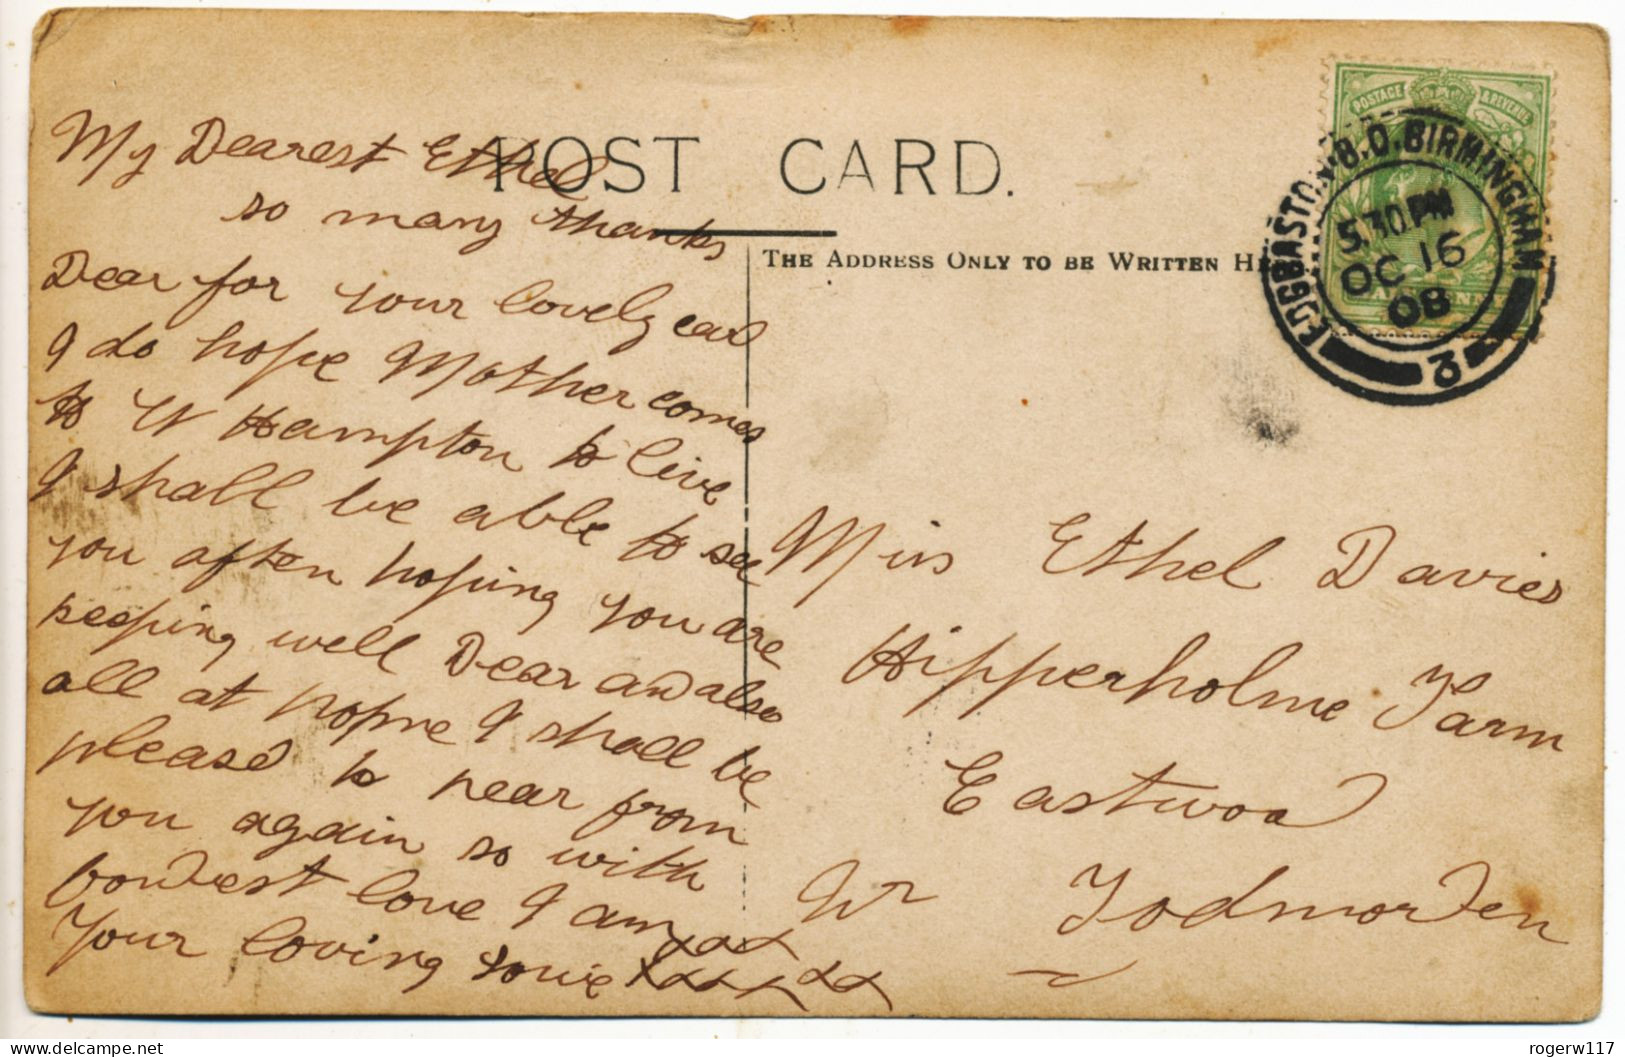 My Dearest Ethel
so many thanks
Dear for your lovely card
I do hope Mother comes
to W Hampton to live
I shall be able to see
you often hoping you are
keeping well Dear and also
all at home I shall be
pleased to hear from
you again so with
fondest love I am
Your loving
POST CARD.
THE ADDRESS ONLY TO BE WRITTEN HE
POSTAGE & REVENUE
EDGBASTON B.O. BIRMINGHAM
5.30 PM
OC 16
08
3
Miss Ethel Davies
Hipperholme Farm
Eastwood
Nr Todmorden
rogerw117